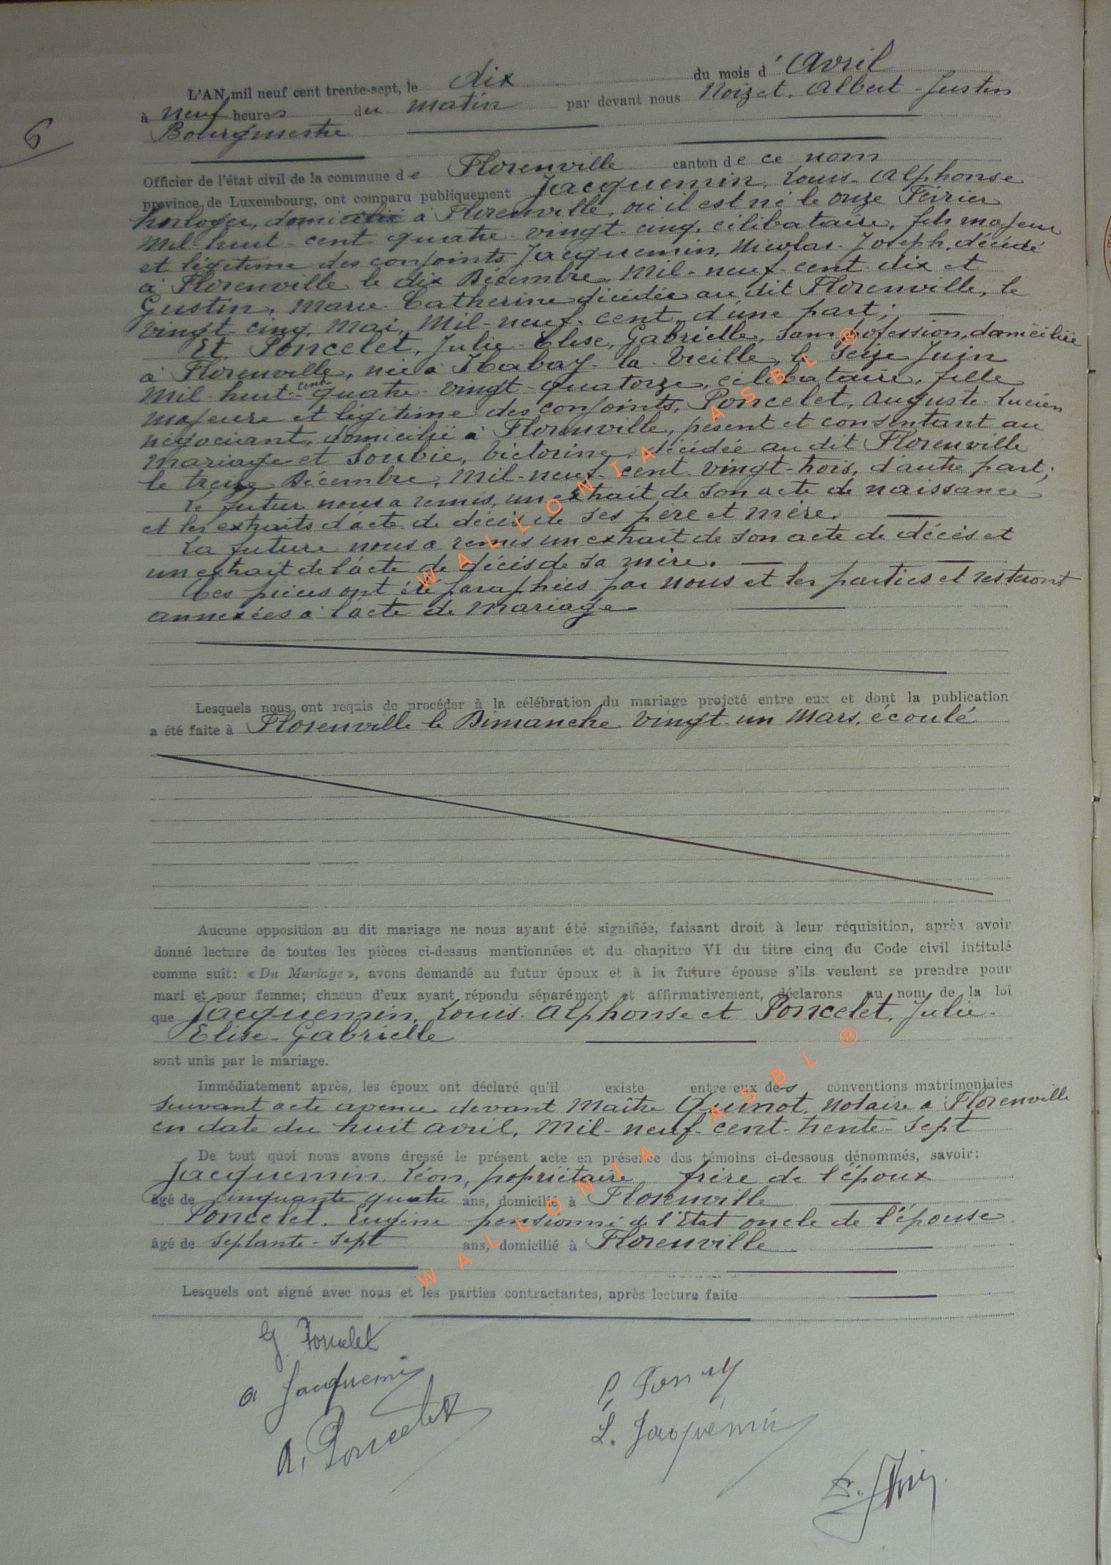 L'AN mil neuf cent trente-sept, le dix du mois d'Avril
à neuf heures du matin par devant nous Noizet, Albert-Justin
Bourgmestre
6
Officier de l'état civil de la commune de Florenville canton de ce nom
province de Luxembourg, ont comparu publiquement Jacquemin, Louis-Alphonse
horloger, domicilié à Florenville, où il est né le onze Février
Mil-huit-cent quatre-vingt-cinq, célibataire, fils majeur
et légitime des conjoints Jacquemin, Nicolas-Joseph, décédé
à Florenville le dix Décembre, Mil-neuf-cent-dix et
Gustin, Marie-Catherine décédée au dit Florenville, le
vingt cinq Mai, Mil-neuf-cent, d'une part;
Et Poncelet, Julie-Elise, Gabrielle, Sans profession, domiciliée
à Florenville, née à Habay-la-Vieille, le Seize Juin
Mil-huit-cent-quatre-vingt-quatorze, célibataire, fille
majeure et légitime des conjoints, Poncelet, Auguste-Lucien
négociant, domicilié à Florenville, présent et consentant au
mariage et Victorine, décédée au dit Florenville
le treize Décembre, Mil-neuf-cent-vingt-trois, d'autre part;
Le futur nous a remis, un extrait de son acte de naissance
et les extraits d'acte de décès de ses père et mère.
La future nous a remis un extrait de son acte de décès et
un extrait de l'acte de décès de sa mère.
Ces pièces ont été paraphées par nous et les parties et resteront
annexées à l'acte de Mariage
Lesquels nous ont requis de procéder à la célébration du mariage projeté entre eux et dont la publication
a été faite à Florenville le Dimanche vingt-un Mars, écoulé
Aucune opposition au dit mariage ne nous ayant été signifiée, faisant droit à leur réquisition, après avoir
donné lecture de toutes les pièces ci-dessus mentionnées et du chapitre VI du titre cinq du Code civil intitulé
comme suit: « Du Mariage », avons demandé au futur époux et à la future épouse s'ils veulent se prendre pour
mari et pour femme; chacun d'eux ayant répondu séparément et affirmativement, déclarons au nom de la loi
que Jacquemin, Louis-Alphonse et Poncelet, Julie-
Elise-Gabrielle
sont unis par le mariage.
Immédiatement après, les époux ont déclaré qu'il existe entre eux des conventions matrimoniales
suivant acte avenu devant Maître Quinot, notaire à Florenville
en date du huit avril, Mil-neuf-cent-trente-sept
De tout quoi nous avons dressé le présent acte en présence des témoins ci-dessous dénommés, savoir:
Jacquemin, Léon, propriétaire, frère de l'époux
âgé de cinquante quatre ans, domicilié à Florenville
Poncelet, Eugène pensionné de l'Etat oncle de l'épouse
âgé de septante-sept ans, domicilié à Florenville
Lesquels ont signé avec nous et les parties contractantes, après lecture faite
G. Poncelet
a Jacquemin
A. Poncelet
L. Jacquemin
WALLONIA ASBL ®
WALLONIA ASBL ®